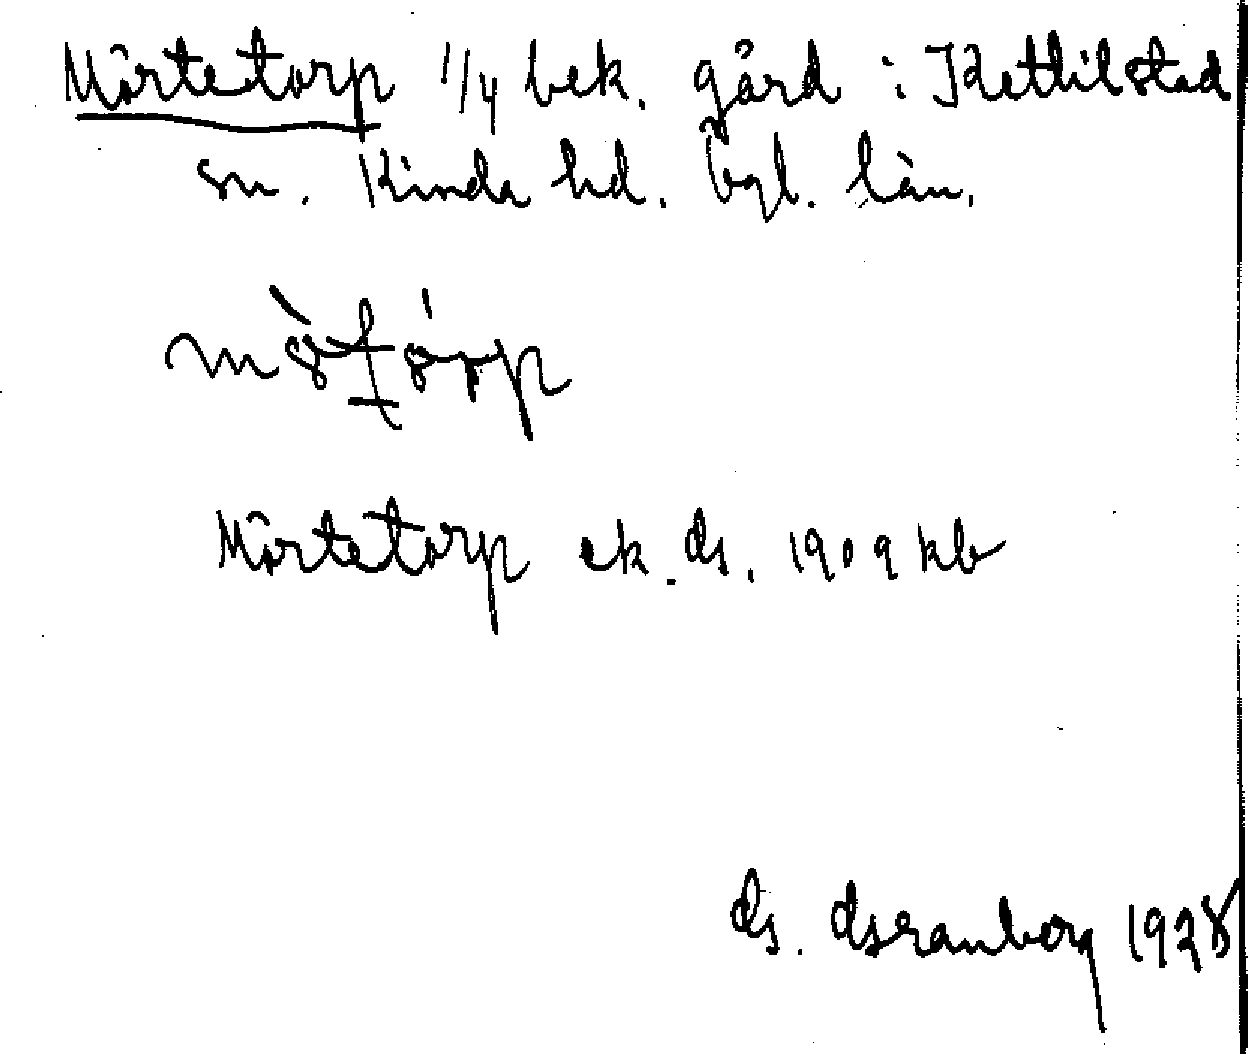 Mörtetorp 1/4 bek. gård i Kettilstad
sn. Kinda hd. Ögl. län.
Mörtetorp ek. ds. 1909 kb
1928